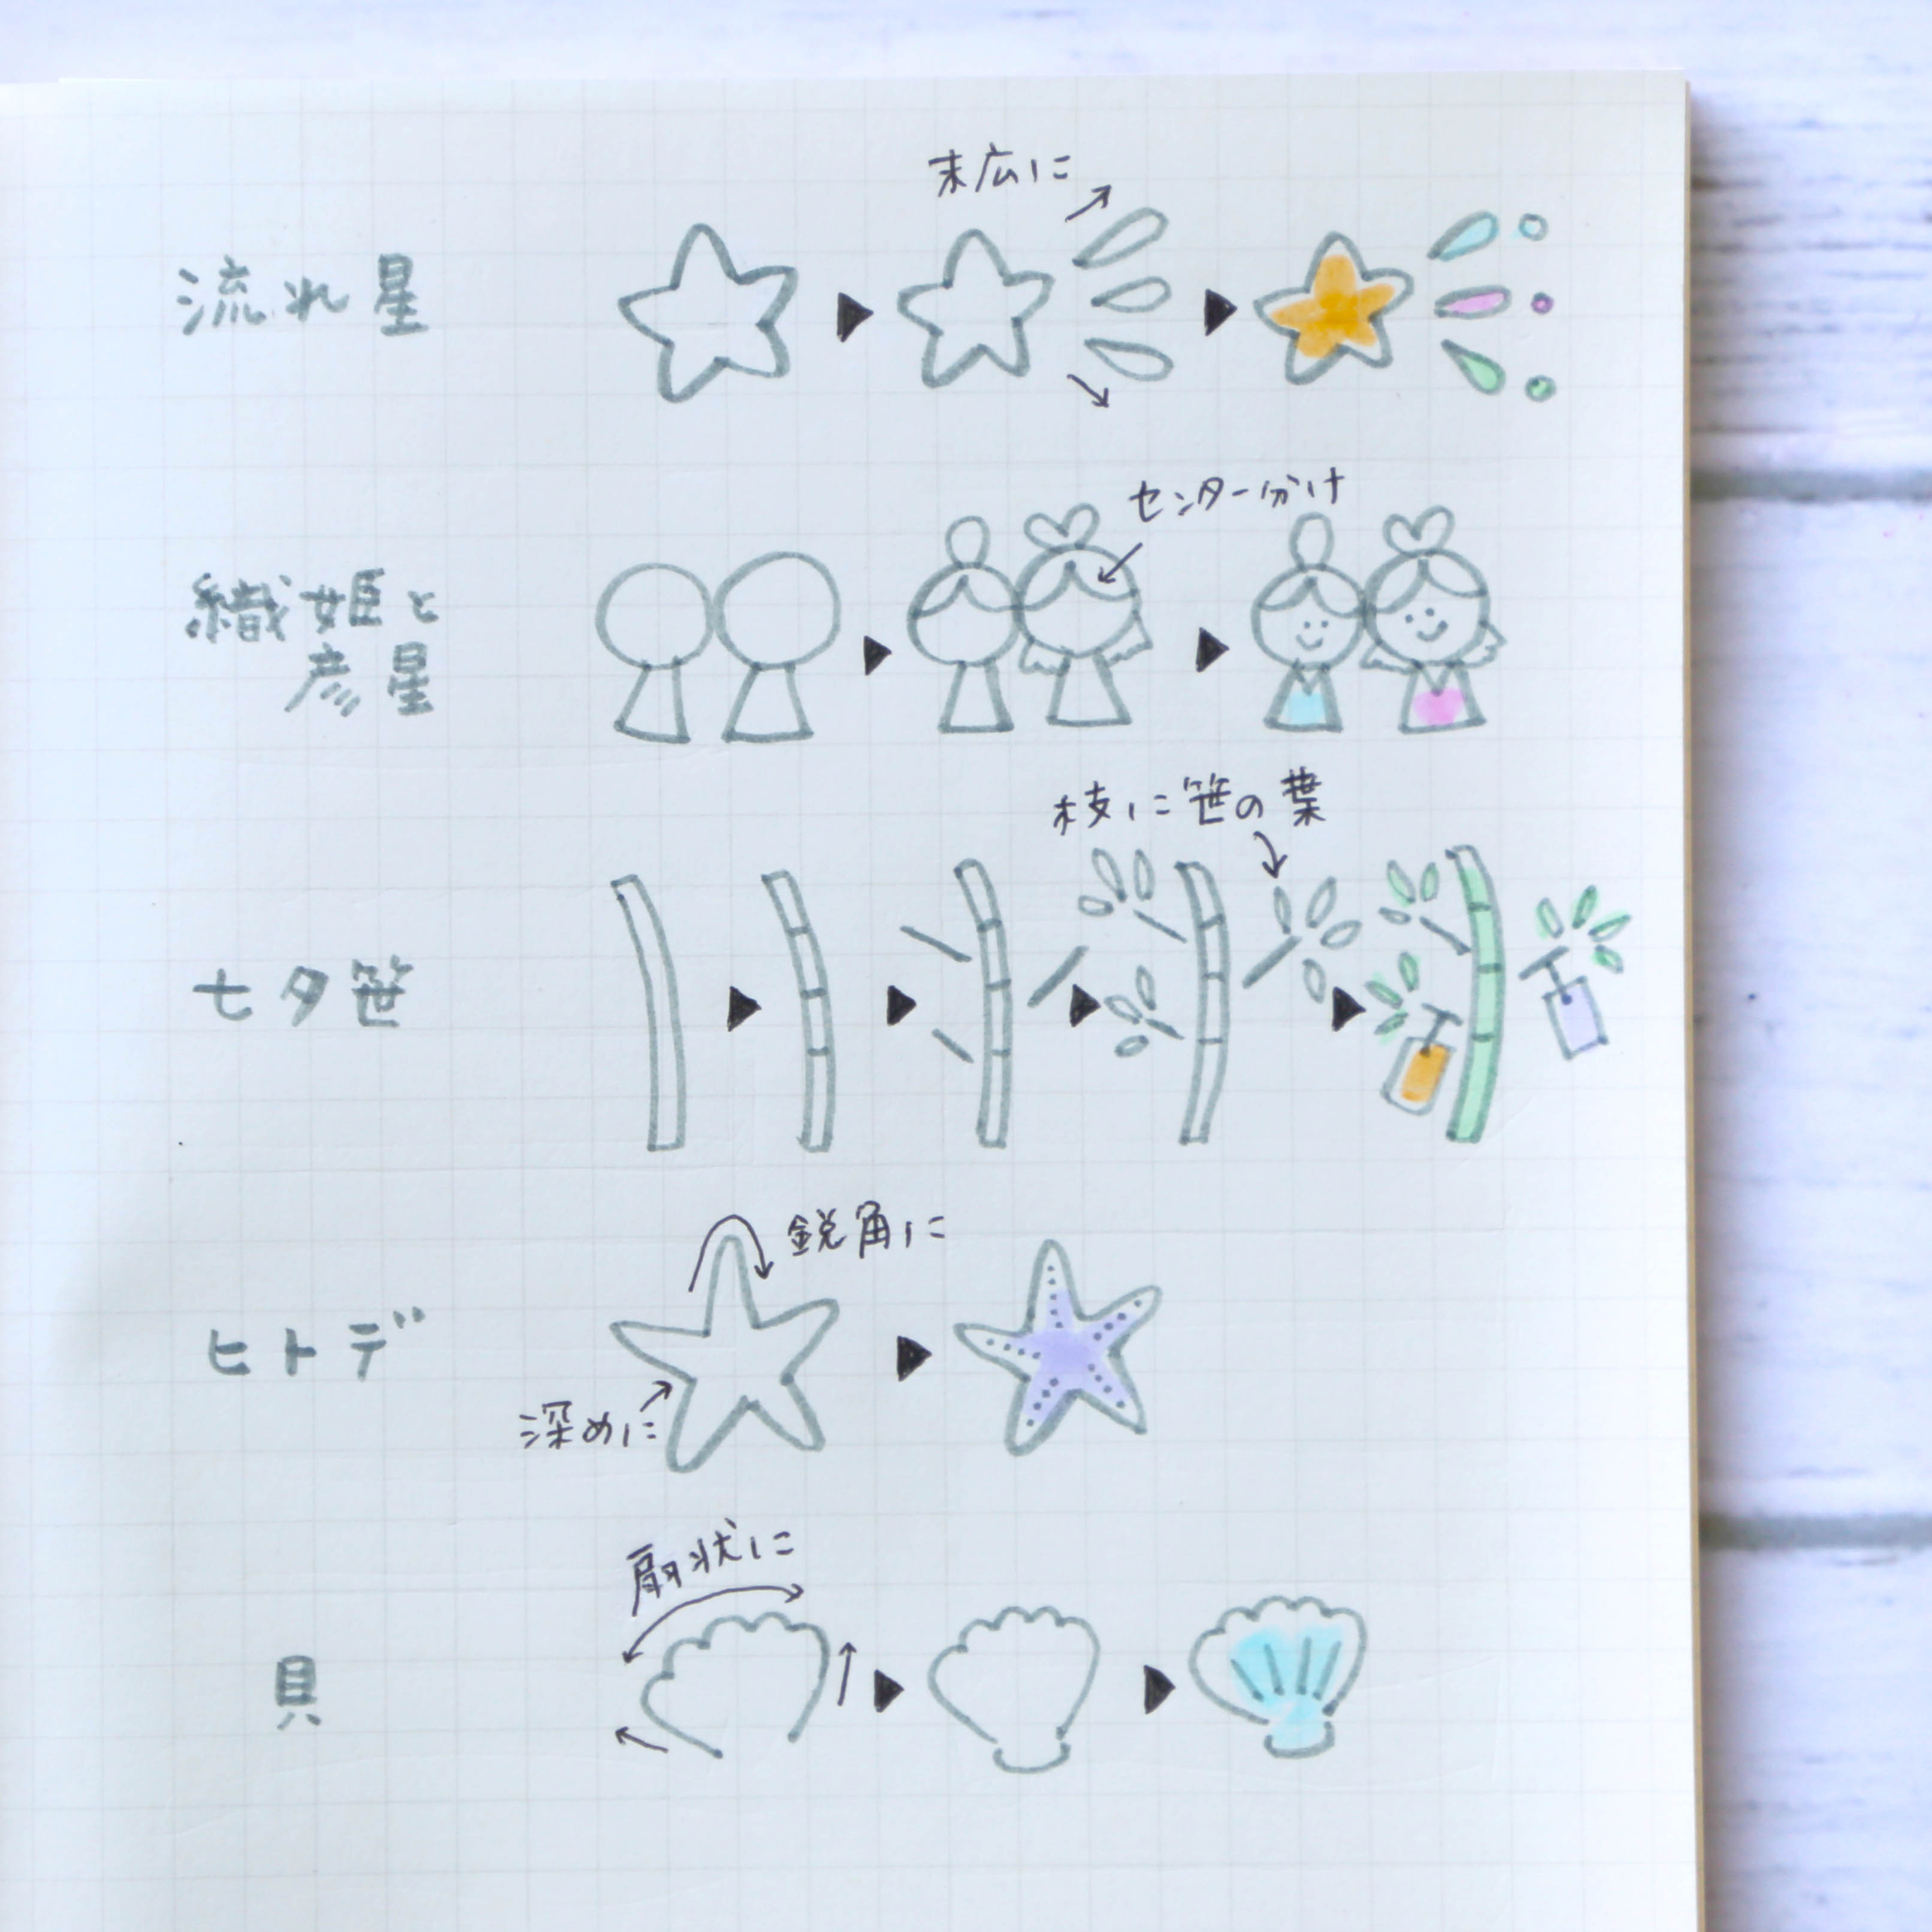 末広に
流れ星
センター分け
織姫と
彦星
枝に笹の葉
七夕笹
鋭角に
ヒトデ
深めに
扇状に
貝